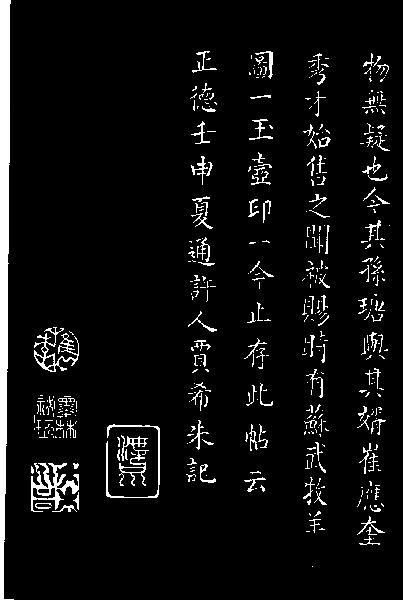 物無疑也今其孫瑭與其婿崔應奎
秀才始售之聞被賜時有蘇武牧羊
圖一玉壺印一今止存此帖云
正德壬申夏通許人賈希朱記